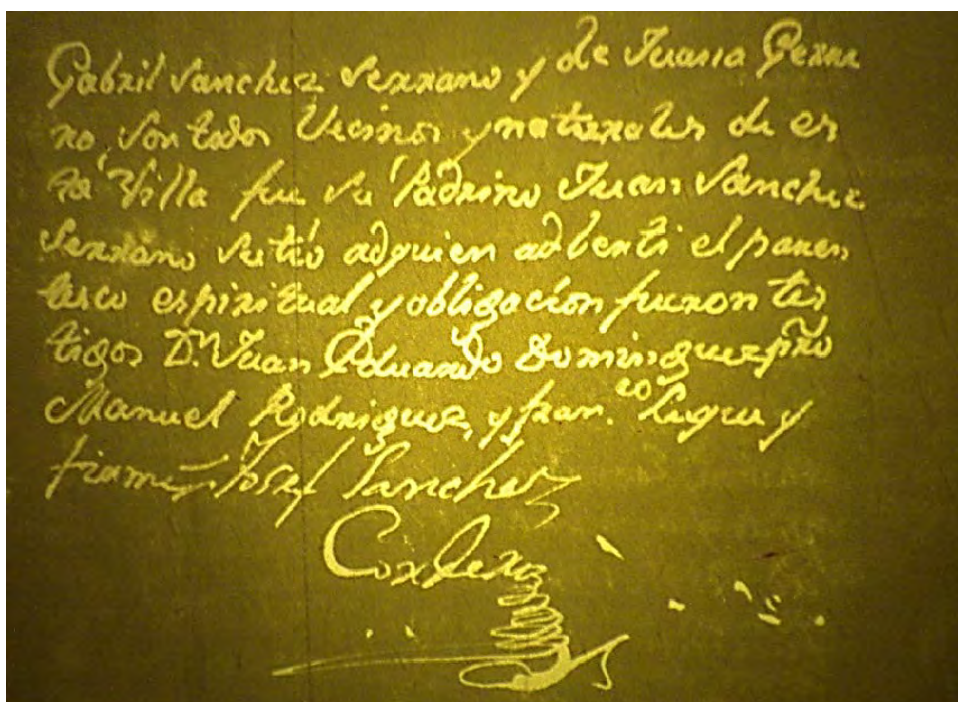 Gabril Sanchez Serrano y de Juana Serra
no, Son todos Vecinos y naturales de es
ta Villa fue Su Padrino Juan Sanchez
Serrano Su tió adquien adbertí el paren
tesco espiritual y obligación fueron tes
tigos Dn. Juan Eduardo Dominguez
Manuel Rodriguez, y fran.co y
firmé Josef Sanchez
Cordero